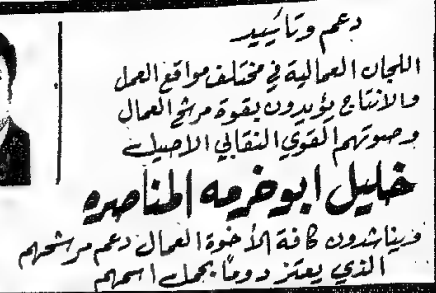 دعم وتأييد
اللجان العمالية في مختلف مواقع العمل
والانتاج يؤيدون بقوة مرشح العمال
وصوتهم القوي النقابي الاصيل
خليل ابوخرمه المناصره
ويناشدون كافة الأخوة العمال دعم مرشحهم
الذي يعتز دوماً بحمل اسمهم